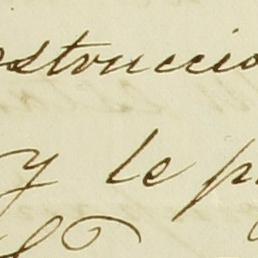 struccio
y le p